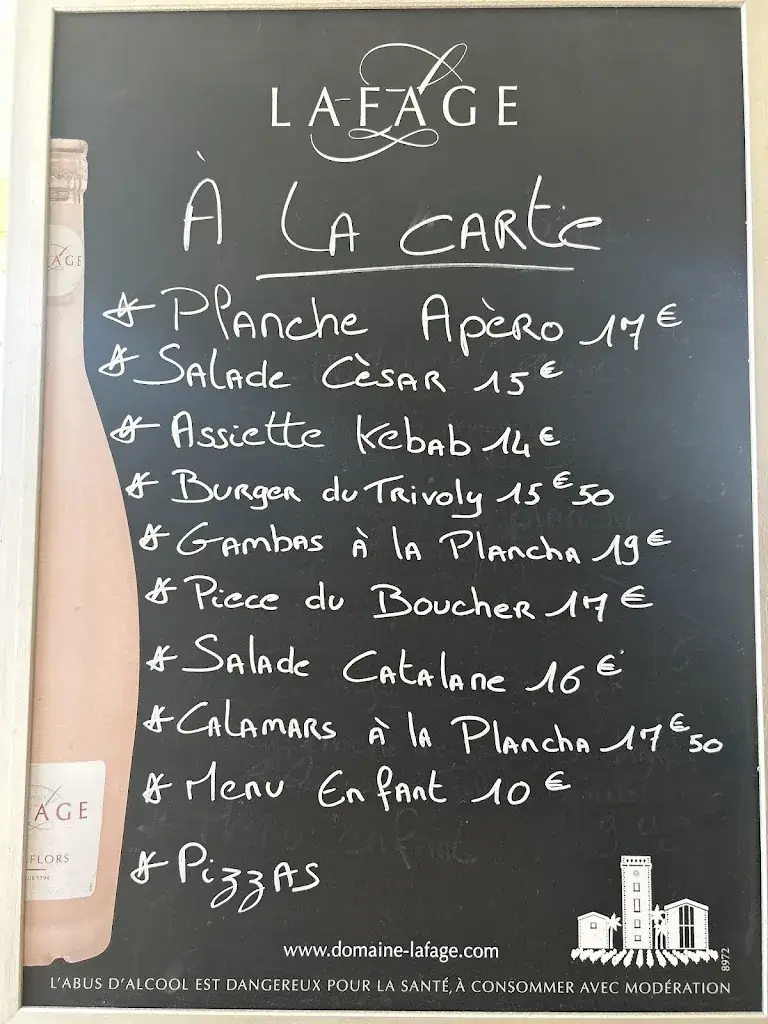 LAFAGE
À LA CARTE
Planche Apèro 17€
Salade Cèsar 15€
Assiette Kebab 14€
Burger du Trivoly 15€50
Gambas à la Plancha 19€
Piece du Boucher 17€
Salade Catalane 16€
Calamars à la Plancha 17€50
Menu Enfant 10€
Pizzas
AGE
AGE
FLORS
www.domaine-lafage.com
8972
L'ABUS D'ALCOOL EST DANGEREUX POUR LA SANTÉ, À CONSOMMER AVEC MODÉRATION